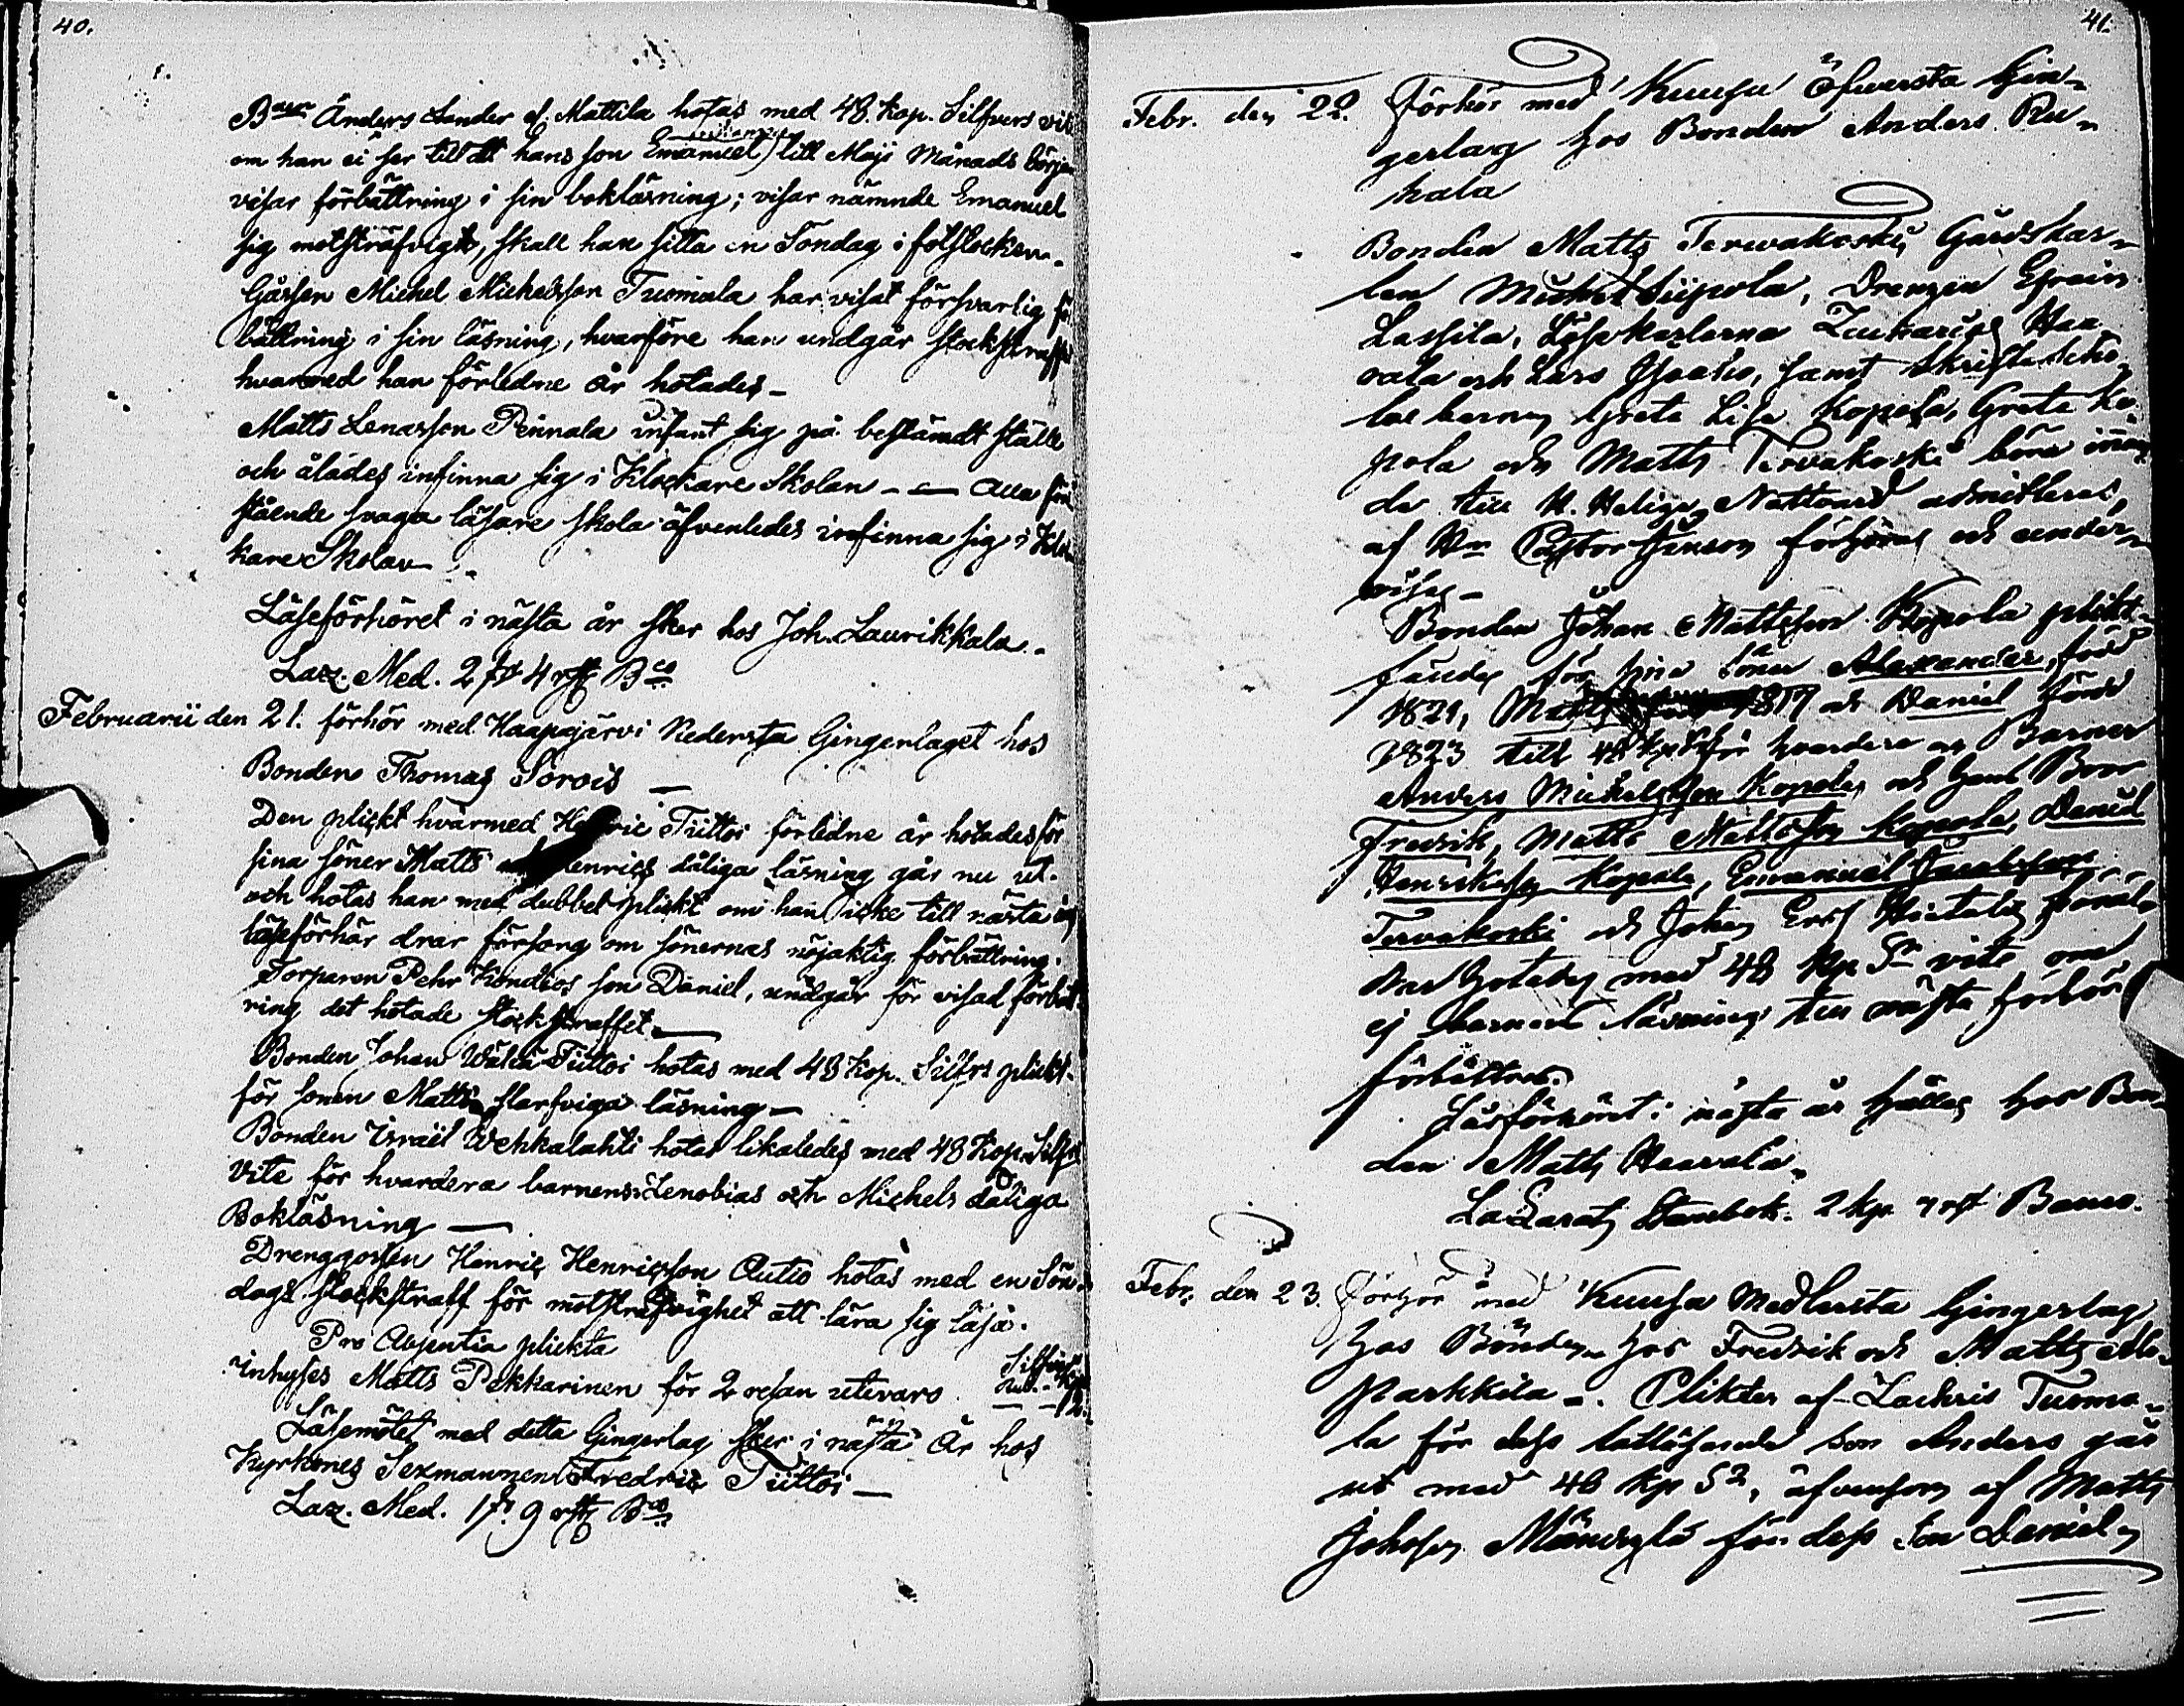 40.
Bden Anders Lander el. Mattila hotas med 48 Kop. Silfvers vite
om han ei ser till att hans son Emanuel till Maji Månads början
visar förbättring i sin bokläsning; visar nämnde Emanuel
sig motsträfvigt, skall han sitta en Söndag i fotstocken.
Gåssen Michel Michelsson Tuomala har visat försvarlig för
bättring i sin läsning, hvarföre han undgår stockstraffet
hvarmed han förledne år hotades –
Matts Lenasson Pennala infant sig på bestämdt ställe
och ålades infinna sig i Klockare Skolan – — Alla för
stående svaga läsare skola äfvenledes infinna sig i Kloc
kare Skolan
Läseförhöret i nästa år sker hos Joh. Laurikkala.
Laz. Med. 2 4 Bco
Februarii den 21. förhör med Haapajärvi Nedersta Gingerlaget hos
Bonden Thomas Sorvis —
Den plickt hvarmed Henric Tiittoi förledne år hotades för
sina söner Matts Henrics dåliga läsning går nu ut.
och hotas han med dubbel plickt om han icke till nästa års
läseförhär drar försorg om sönernas nöjaktig förbättring.
Torparen Pehr Kondios son Daniel, undgår för visad förbätt
ring det hotade stockstraffet —
Bonden Johan Wähä Tiittoi hotas med 48 Kop. Silfrs plickt
för sonen Matts slarfviga läsning —
Bonden Israël Wehkalahti hotas likaledes med 48 Kop. Silfrs
Vite för hvardera barnens Zenobias och Michels dåliga
Bokläsning —
Drenggossen Henric Henricsson Autio hotas med en Sön
dags stockstraff för motsträfvighet att lära sig läsa.
Pro Absentia plickta
Inhyses Matts Pekkarinen för 2 resan utevaro.
Läsemötet med detta Gingerlag sker i nästa År hos
Kyrkones Sexmannen Fredric Tiittoi —
Laz. Med. 1 9 Bco
41.
Febr. den 22. Förhör med Kuusa Öfwersta Gin-
gerlag hos Bonden Anders Ru-
hala
Bonden Matts Terwakoski, Gårdskar-
len Michel Siipola, Drengen Efraim
Lassila, Löskarlarne Zackarias Haa-
vala och Lars Isoaho, samt Skriftskho-
lae barnen Greta Lisa Kopola, Greta Ko-
pola och Matts Tervakoski böra innan
de till H. Heliga Nattvard admitteras,
af Hr Pastor förhöras och under-
visas –
Bonden Johan Mattsson Kopola plikt-
fäldes för sina söner Alexander, född
1821, Matts 1817 och Daniel född
1823 till 48 kp för hvardera Barnen
Anders Michelsson Kopola, och hans Bror
Fredrik, Matts Mattsson Kopola, Daniel
Henriksson Kopola, Emanuel
Tervakoski och Johan Ers Hietala föräl-
drar hotades med 48 kp Sr vite om
ej barnens läsning till nästa förhör
förbättras.
Läsförhöret i nästa år hålles hos Bon-
den Matts Haavala.
Lazarets Stambok. 2 kp Banco.
Febr. den 23. Förhör med Kuusa Medlersta Gingerlag
hos Bönden hos Fredrik och Matts Ala
Parkkila –. Plikten af Zachris Tuoma-
la för dess lattläsande son Anders går
ut med 48 kp Sr, äfvensom af Matts
Johnson för dess son Daniel,